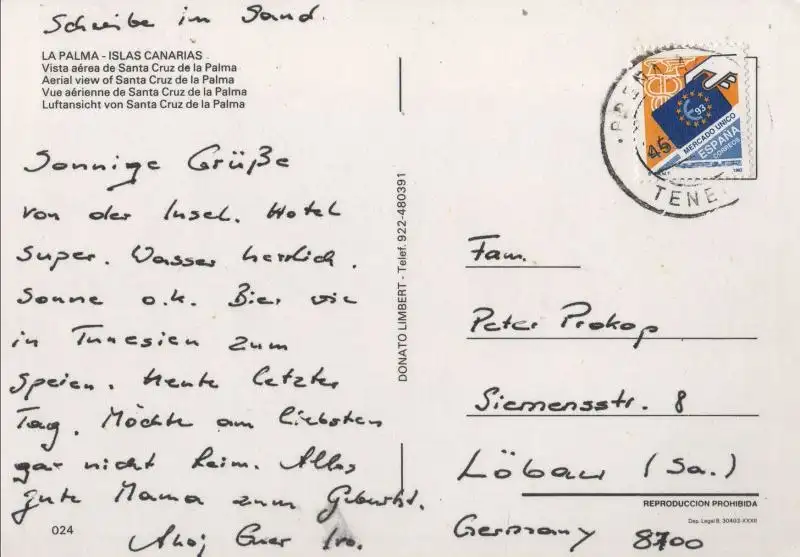 Schreibe im Sand.
LA PALMA - ISLAS CANARIAS
Vista aérea de Santa Cruz de la Palma
Aerial view of Santa Cruz de la Palma
Vue aérienne de Santa Cruz de la Palma
Luftansicht von Santa Cruz de la Palma
Sonnige Grüße
von der Insel. Hotel
super. Wasser herrlich.
Sonne o.k. Bier wie
in Tunesien zum
Speien. Heute letzter
Tag. Möchte am liebsten
gar nicht heim. Alles
gute Mama zum Geburtst.
Ahoj Euer
024
DONATO LIMBERT - Telef. 922-480391
93
45
MERCADO UNICO
ESPAÑA
CORREOS
1992
TENE
Fam.
Peter Prokop
Siemensstr. 8
Löbau (Sa.)
REPRODUCCION PROHIBIDA
Dep. Legal B. 30403-XXXII
Germany 8700